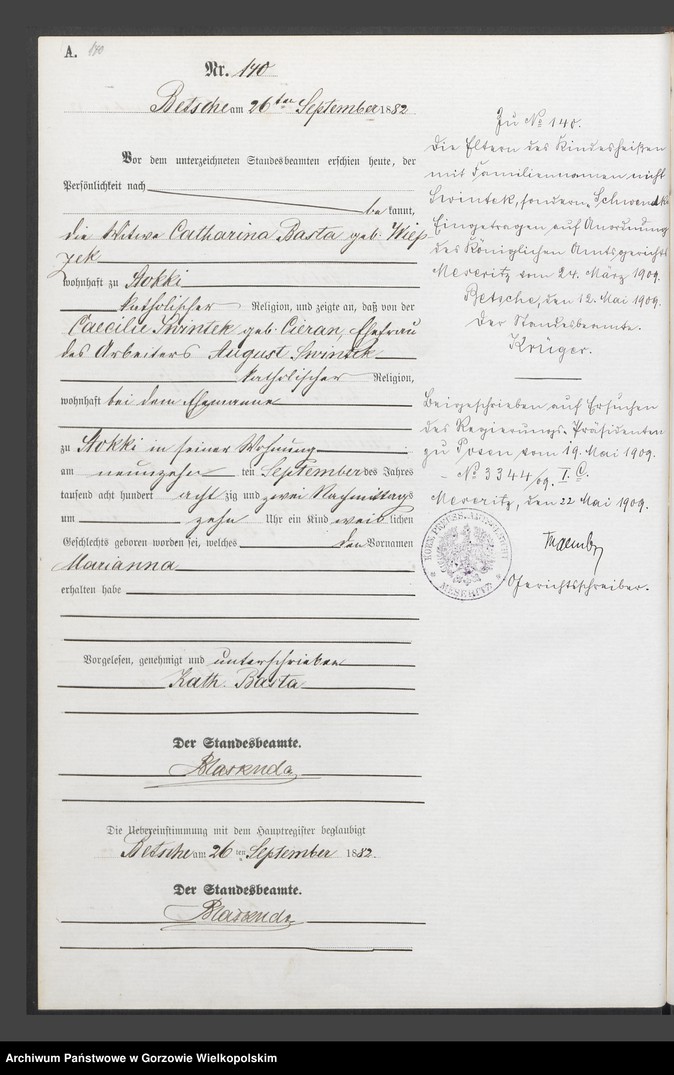 A. 140
Nr. 140
Betsche am 26ten September 1882
Vor dem unterzeichneten Standesbeamten erschien heute, der
Persönlichkeit nach
bekannt,
die Witwe Catharina Basta geb. Wiep
zek
wohnhaft zu Stokki
katholischer Religion, und zeigte an, daß von der
Caecilie Swintek geb. Cieran, Ehefrau
des Arbeiters August Swintek
katholischer Religion,
wohnhaft bei dem Ehemanne
zu Stokki in seiner Wohnung
am neunzehn ten September des Jahres
tausend acht hundert acht zig und zwei Nachmittags
um zehn Uhr ein Kind weiblichen
Geschlechts geboren worden sei, welches den Vornamen
Marianna
erhalten habe
Vorgelesen, genehmigt und unterschrieben
Kath. Basta
Der Standesbeamte.
Die Uebereinstimmung mit dem Hauptregister beglaubigt
Betsche am 26ten September 1882.
Der Standesbeamte.
Zu No 140.
Die Eltern des Kindes heißen
mit Familiennamen nicht
Swintek, sondern
Eingetragen auf Anordnung
des Königlichen Amtsgerichts
Meseritz vom 24. März 1909.
Betsche, den 12. Mai 1909.
Der Standesbeamte.
Krüger.
Beigeschrieben auf Ersuchen
des Regierungs-Präsidenten
zu Posen vom 19. Mai 1909.
- No 3344/09. I. C.
Meseritz, den 22 Mai 1909.
KÖN. PREUSS. AMTSGERICHT
* MESERITZ *
Gerichtsschreiber.
Archiwum Państwowe w Gorzowie Wielkopolskim